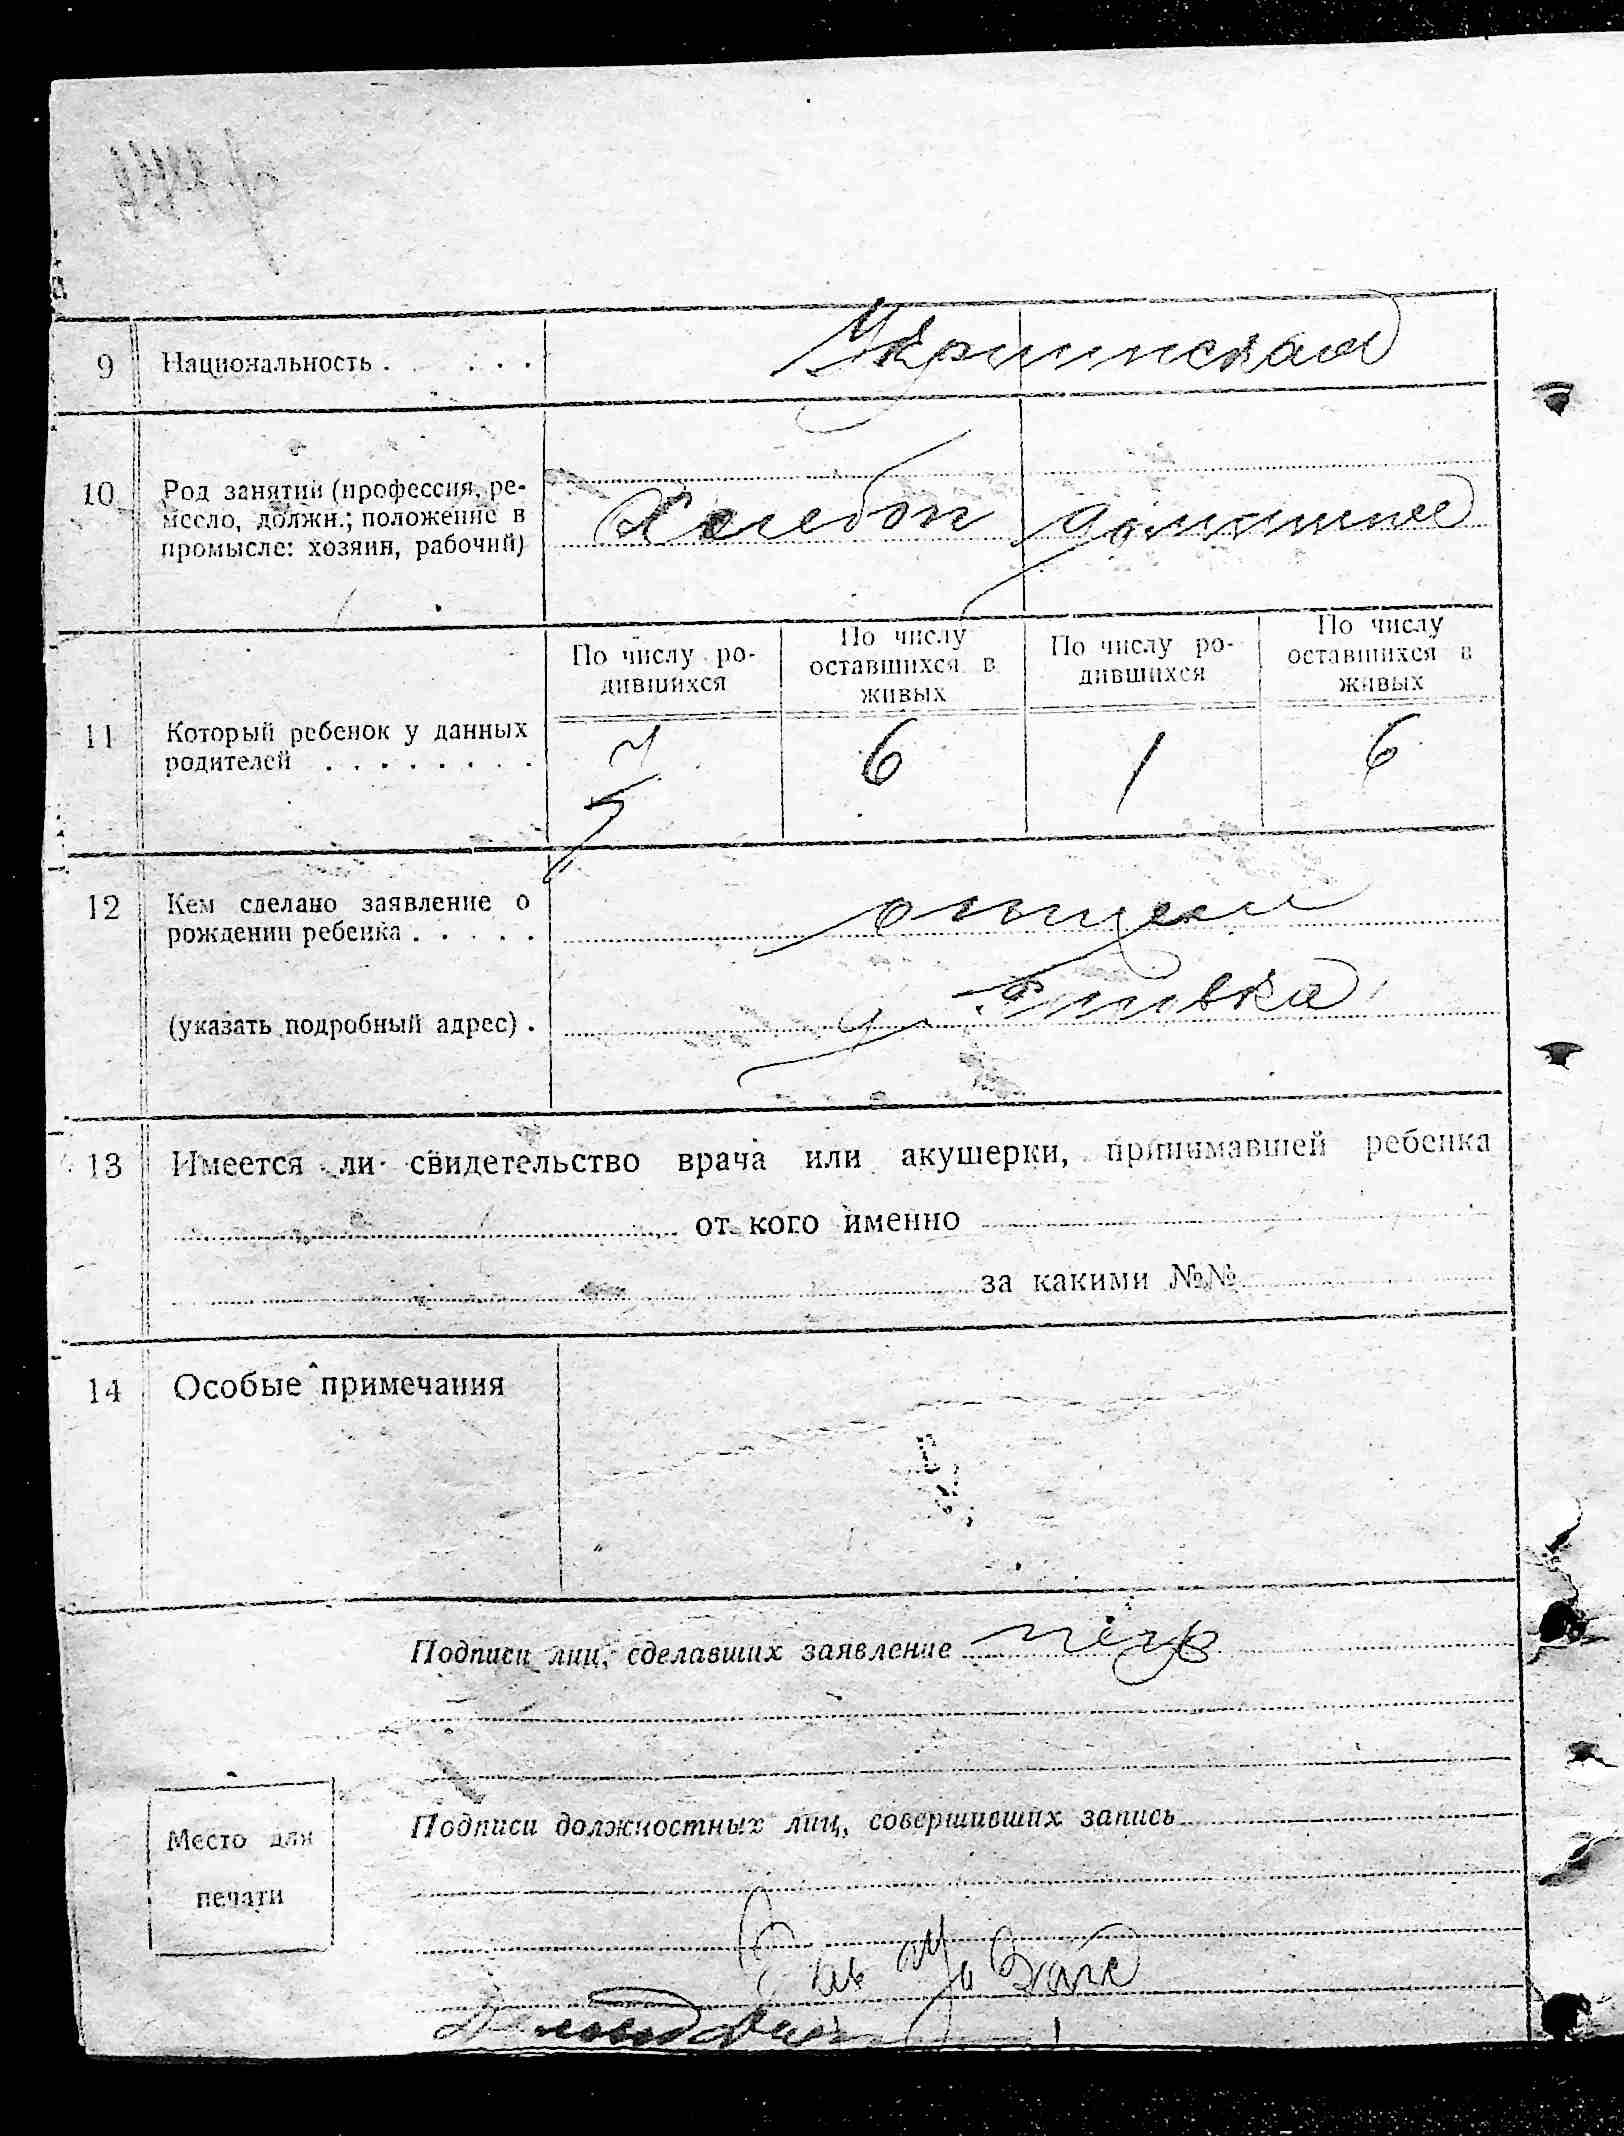 9 Национальность . . . . .
Украинская
10 Род занятий (профессия, ре-
месло, должн.; положение в
промысле: хозяин, рабочий)
Хлебоп домашнее
По числу ро-
дившихся
По числу
оставшихся в
живых
По числу ро-
дившихся
По числу
оставшихся в
живых
11 Который ребенок у данных
родителей . . . . . . . .
7 6 1 6
12 Кем сделано заявление о
рождении ребенка . . . . .
отцем
(указать подробный адрес) .
13 Имеется ли свидетельство врача или акушерки, принимавшей ребенка
от кого именно
за какими №№
14 Особые примечания
Подписи лиц, сделавших заявление
Подписи должностных лиц, совершивших запись
Место для
печати